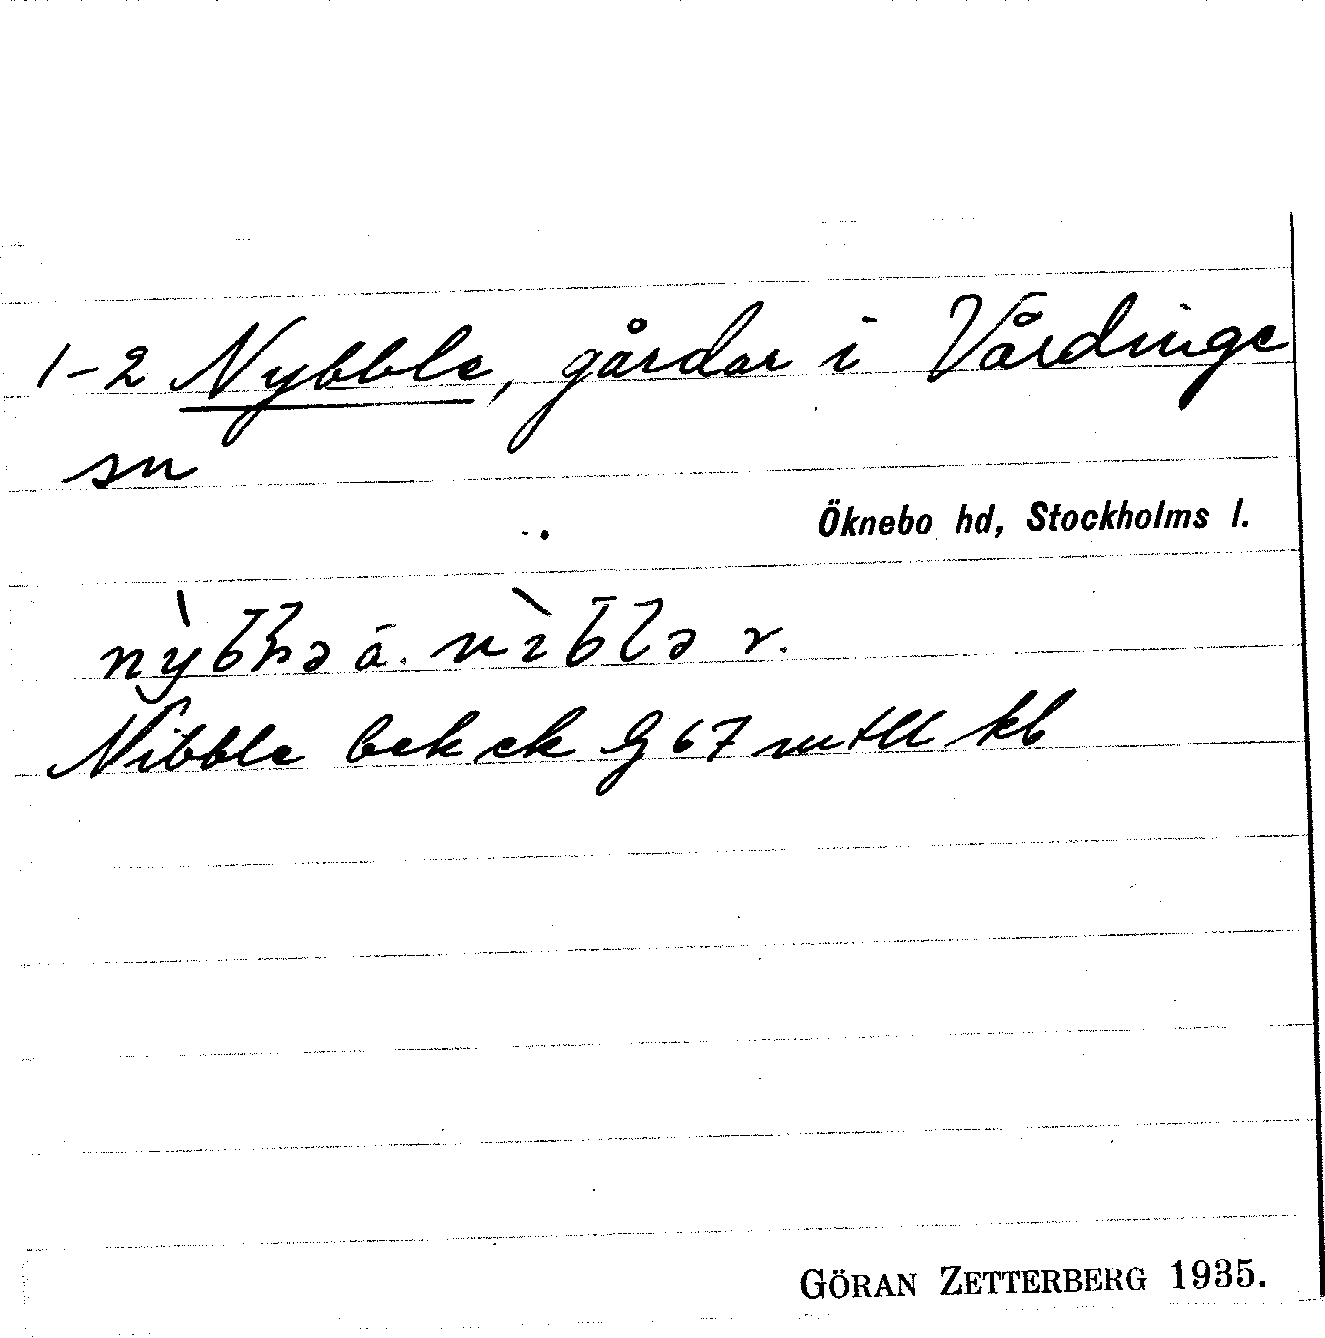 1-2 Nybble, gårdar i Vårdinge
sn
Öknebo hd, Stockholms l.
r.
Nibble bek ek G 67 mtll kb
GÖRAN ZETTERBERG 1935.